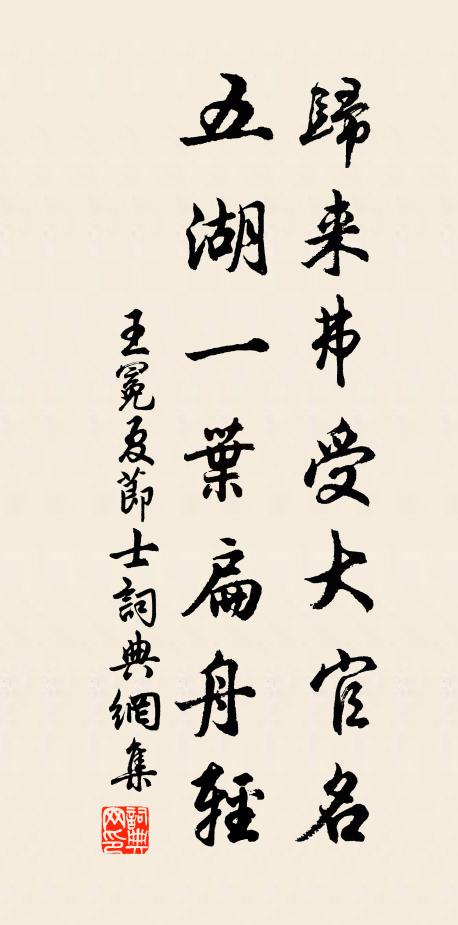 歸来弗受大官名
五湖一葉扁舟輕
王冕夏節士詞典網集
詞典網印